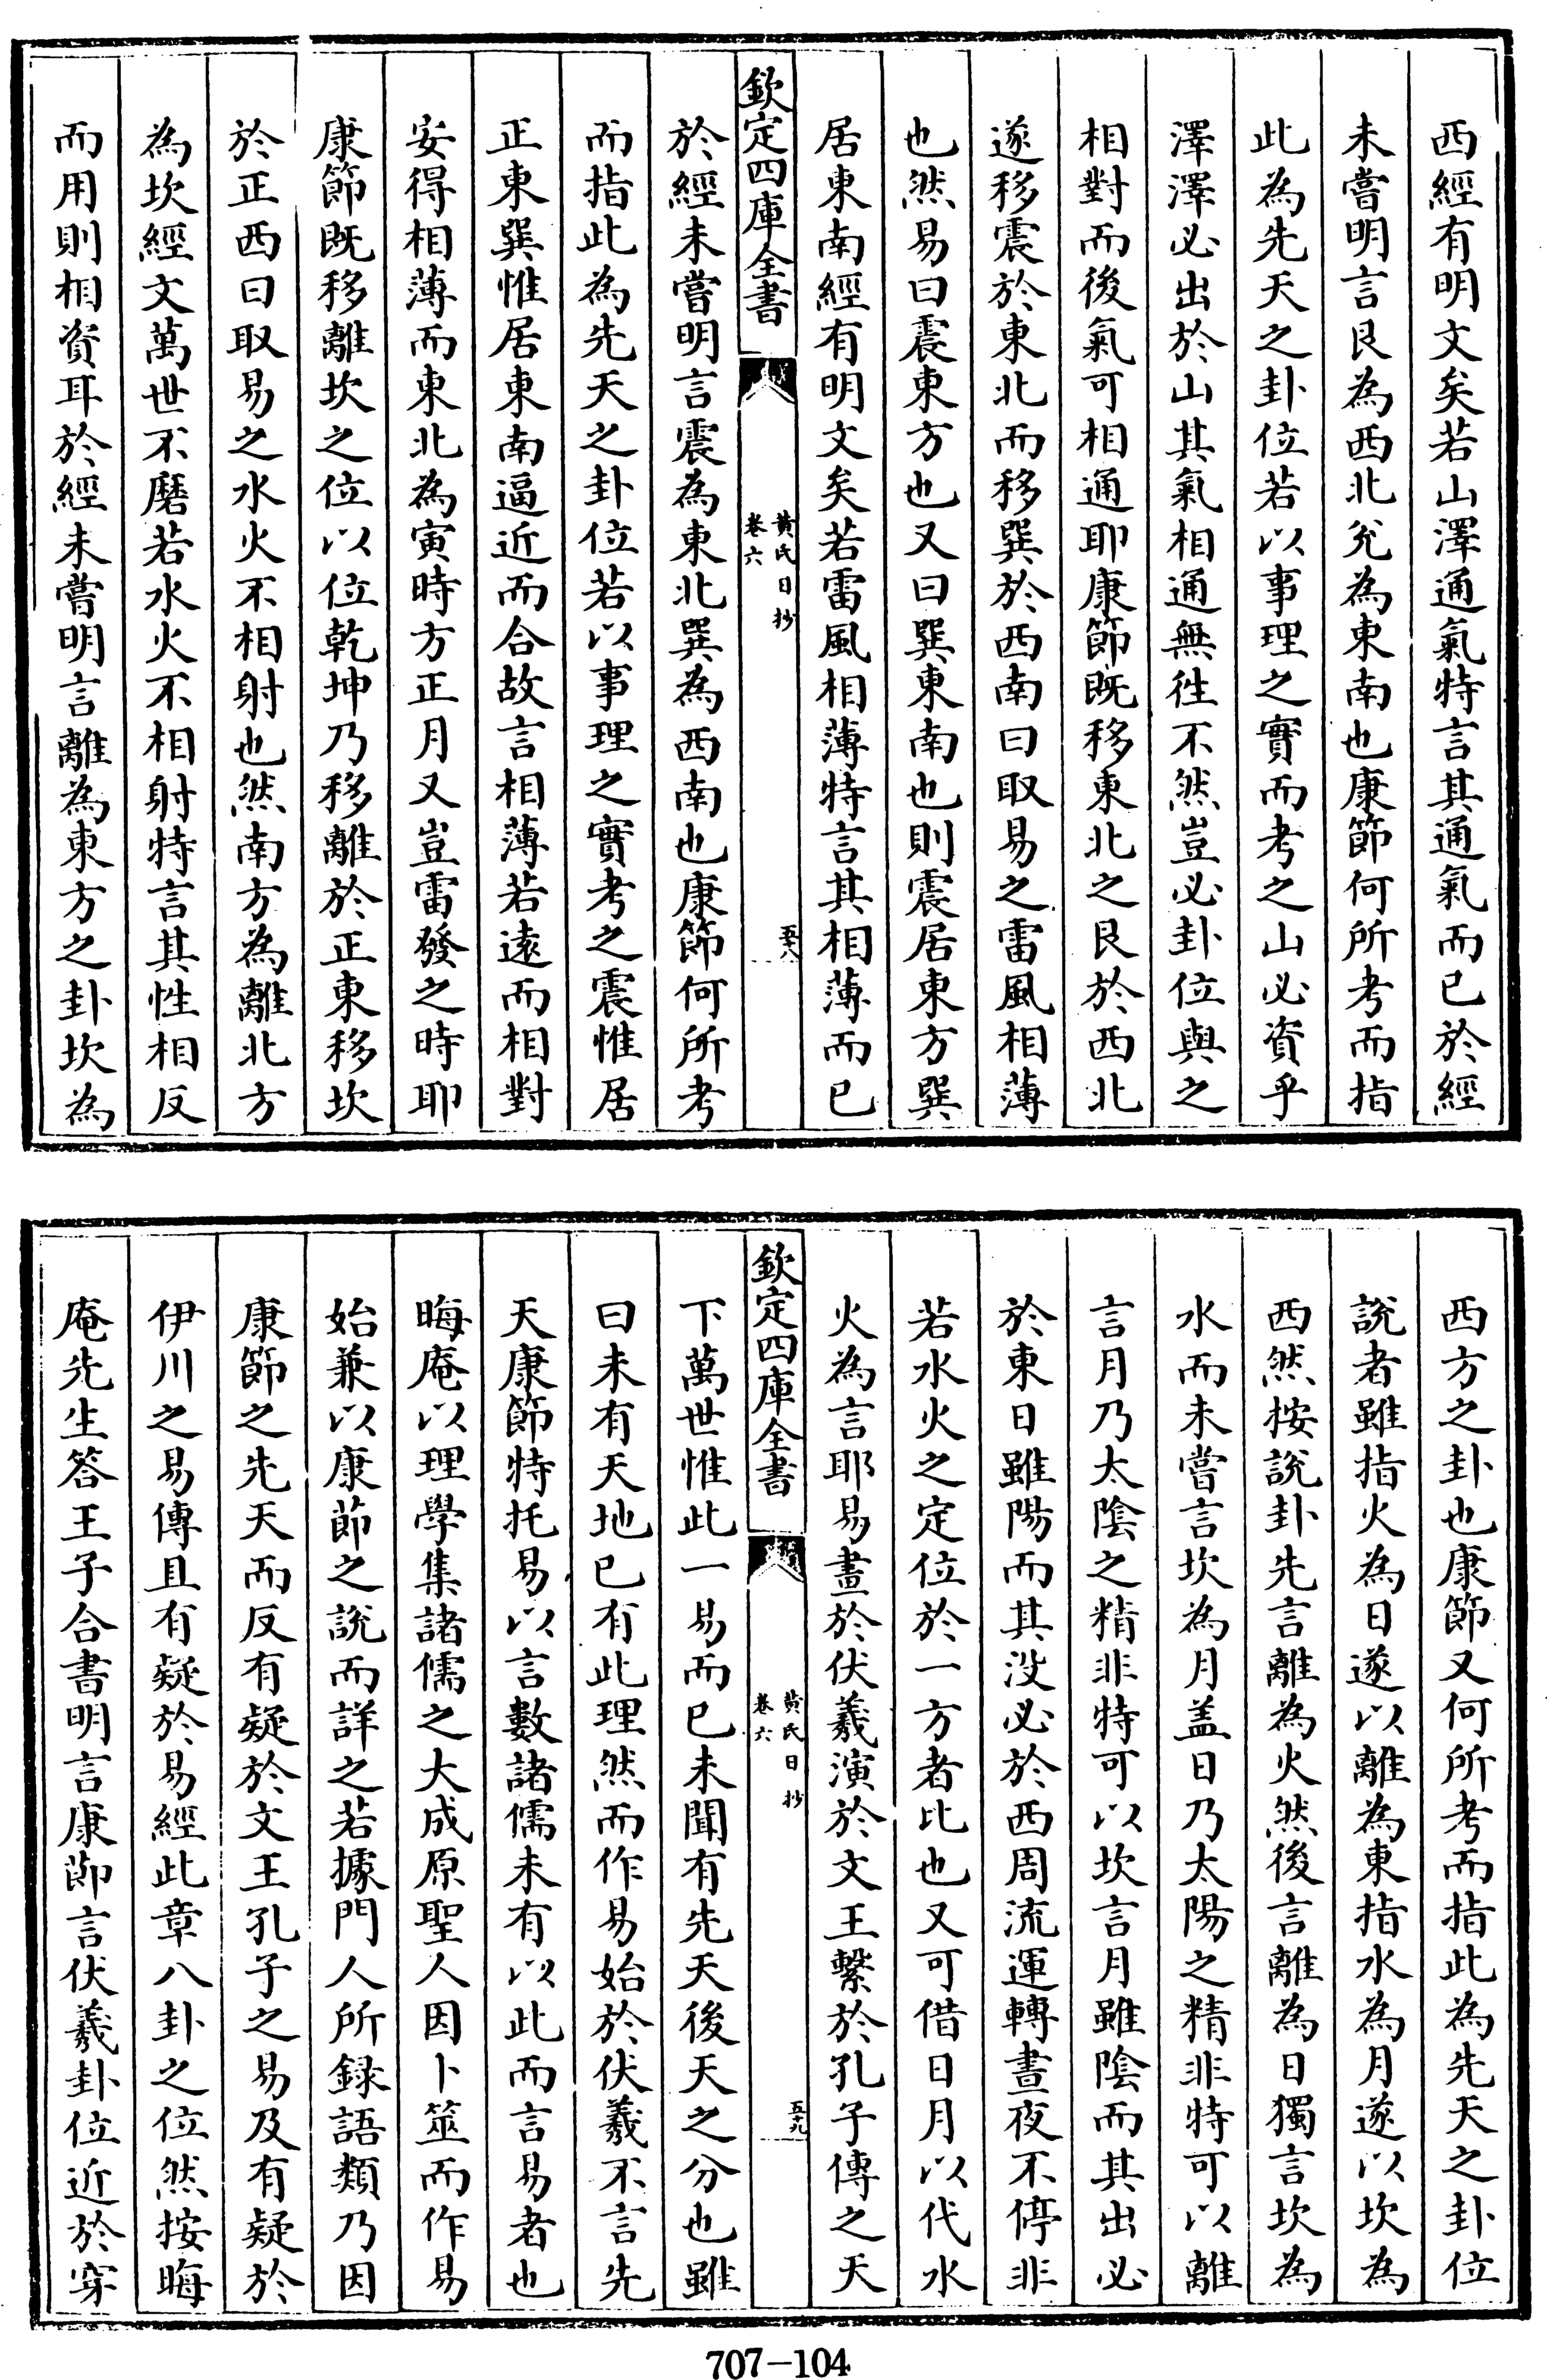 西經有明文矣若山澤通氣特言其通氣而已於經
未嘗明言艮為西北兊為東南也康節何所考而指
此為先天之卦位若以事理之實而考之山必資乎
澤澤必出於山其氣相通無徃不然豈必卦位與之
相對而後氣可相通耶康節既移東北之艮於西北
遂移震於東北而移巽於西南曰取易之雷風相薄
也然易曰震東方也又曰巽東南也則震居東方巽
居東南經有明文矣若雷風相薄特言其相薄而已
欽定四庫全書
黄氏日抄
卷六
五十八
於經未嘗明言震為東北巽為西南也康節何所考
而指此為先天之卦位若以事理之實考之震惟居
正東巽惟居東南逼近而合故言相薄若遠而相對
安得相薄而東北為寅時方正月又豈雷發之時耶
康節既移離坎之位以位乾坤乃移離於正東移坎
於正西曰取易之水火不相射也然南方為離北方
為坎經文萬世不磨若水火不相射特言其性相反
而用則相資耳於經未嘗明言離為東方之卦坎為
西方之卦也康節又何所考而指此為先天之卦位
說者雖指火為日遂以離為東指水為月遂以坎為
西然按說卦先言離為火然後言離為日獨言坎為
水而未嘗言坎為月盖日乃太陽之精非特可以離
言月乃太陰之精非特可以坎言月雖陰而其出必
於東日雖陽而其没必於西周流運轉晝夜不停非
若水火之定位於一方者比也又可借日月以代水
火為言耶易畫於伏羲演於文王繫於孔子傳之天
欽定四庫全書
黄氏日抄
卷六
五十九
下萬世惟此一易而已未聞有先天後天之分也雖
曰未有天地已有此理然而作易始於伏羲不言先
天康節特托易以言數諸儒未有以此而言易者也
晦庵以理學集諸儒之大成原聖人因卜筮而作易
始兼以康節之說而詳之若據門人所録語類乃因
康節之先天而反有疑於文王孔子之易及有疑於
伊川之易傳且有疑於易經此章八卦之位然按晦
庵先生答王子合書明言康節言伏羲卦位近於穿
707-104